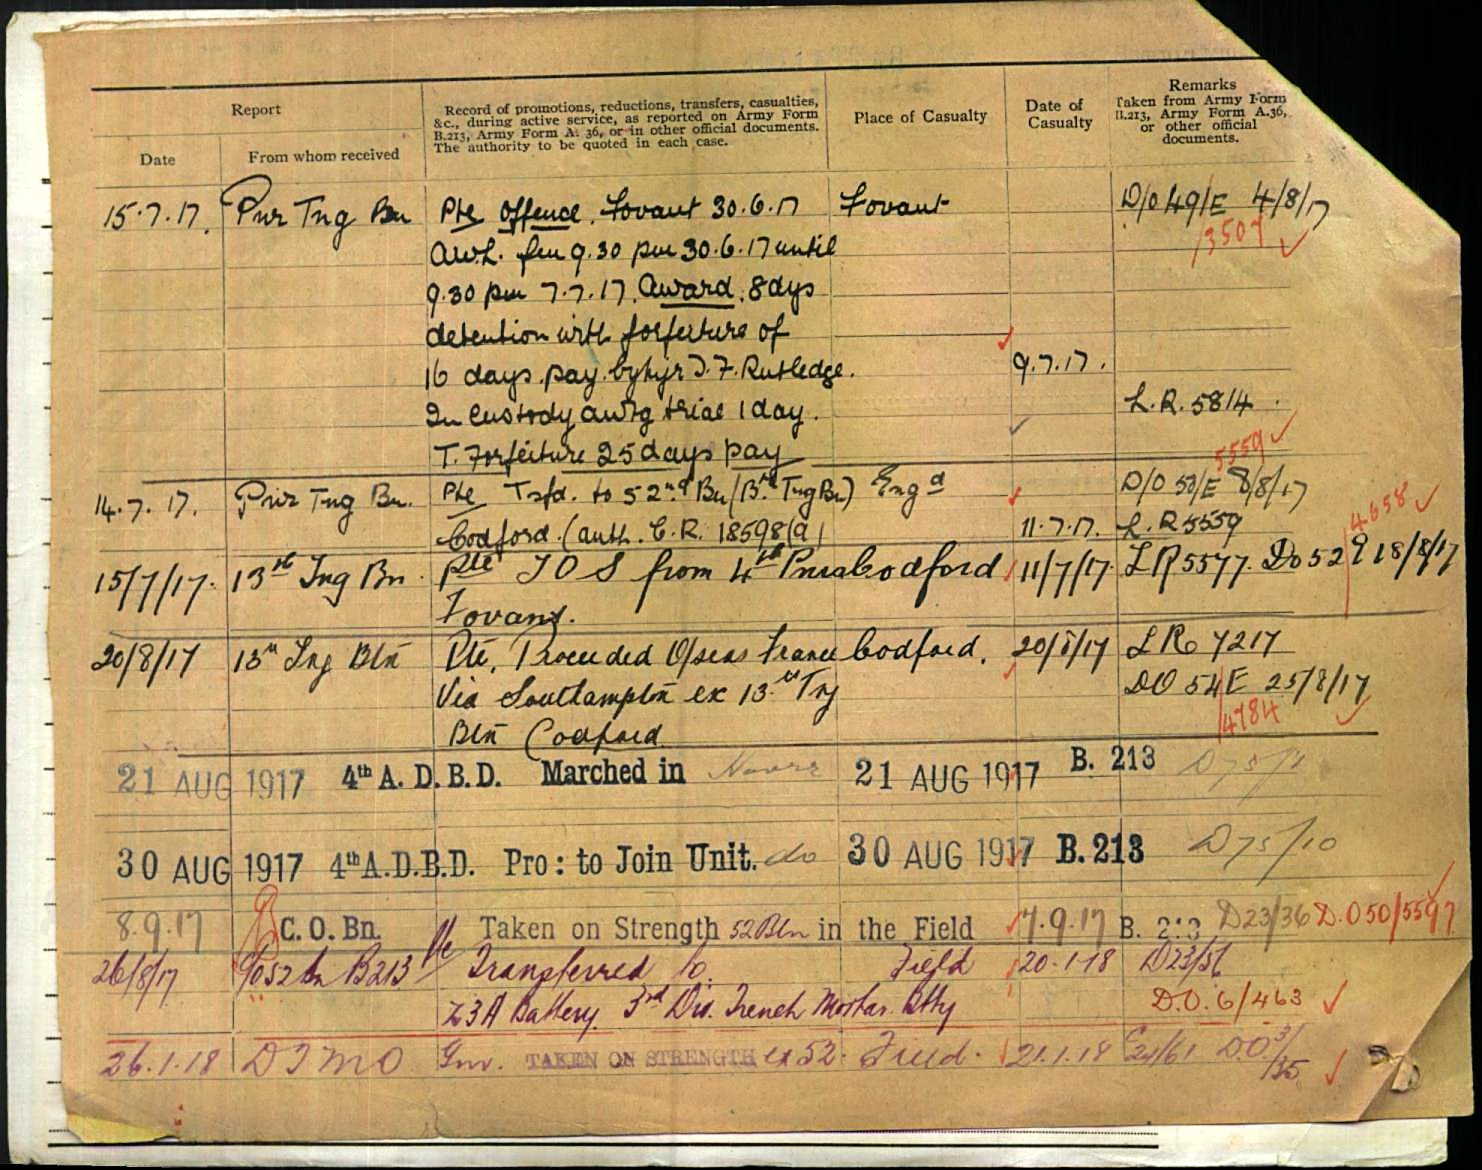 Report
Date
From whom received
Record of promotions, reductions, transfers, casualties,
&c., during active service, as reported on Army Form
B.213, Army Form A. 36, or in other official documents.
The authority to be quoted in each case.
Place of Casualty
Date of
Casualty
Remarks
Taken from Army Form
B.213, Army Form A.36,
or other official
documents.
15.7.17. Pnr Tng Bn Pte Offence. Fovant 30.6.17 Fovant D/O 49/E 4/8/17
AWL. fm 9.30 pm 30.6.17 until /3507
9.30 pm 7.7.17. Award. 8 dys
detention with forfeiture of
16 days pay by Mjr J. F. Rutledge. 9.7.17.
In custody awtg trial 1 day. L.R. 5814.
T. Forfeiture 25 days pay 5559
14.7.17. Pnr Tng Bn. Pte Tsfd. to 52nd Bn (13th Tng Bn) Eng d D/O 50/E 8/8/17
Codford. (auth. C.R. 18598(a) 11.7.17. L.R 5559 4658
15/7/17. 13th Tng Bn. Pte T O S from 4th Pnrs Codford 11/7/17. LR 5577. Do 52 18/8/17
Fovant.
20/8/17 13th Tng Btn Pte. Proceeded O/seas France Codford. 20/8/17 LR. 7217
Via Southampton ex 13th Tng DO 54/E 25/8/17
Btn Codford 4784
21 AUG 1917 4th A. D. B. D. Marched in Havre 21 AUG 1917 B. 213 D75/
30 AUG 1917 4th A.D.B.D. Pro: to Join Unit. do 30 AUG 1917 B. 213 D75/10
8.9.17 C. O. Bn. Pte Taken on Strength 52 Btn in the Field 7.9.17 B. 213 D23/36 D.O 50/5597
26/8/17 52 Bn B213 Transferred to Field 20.1.18 D23/56
Z3A Battery. 3rd Div. Trench Mortar. Btty D.O. 6/463
26.1.18 D T M O Gnr. TAKEN ON STRENGTH ex 52. Field. 21.1.18 C24/61 D.O. 3/
35